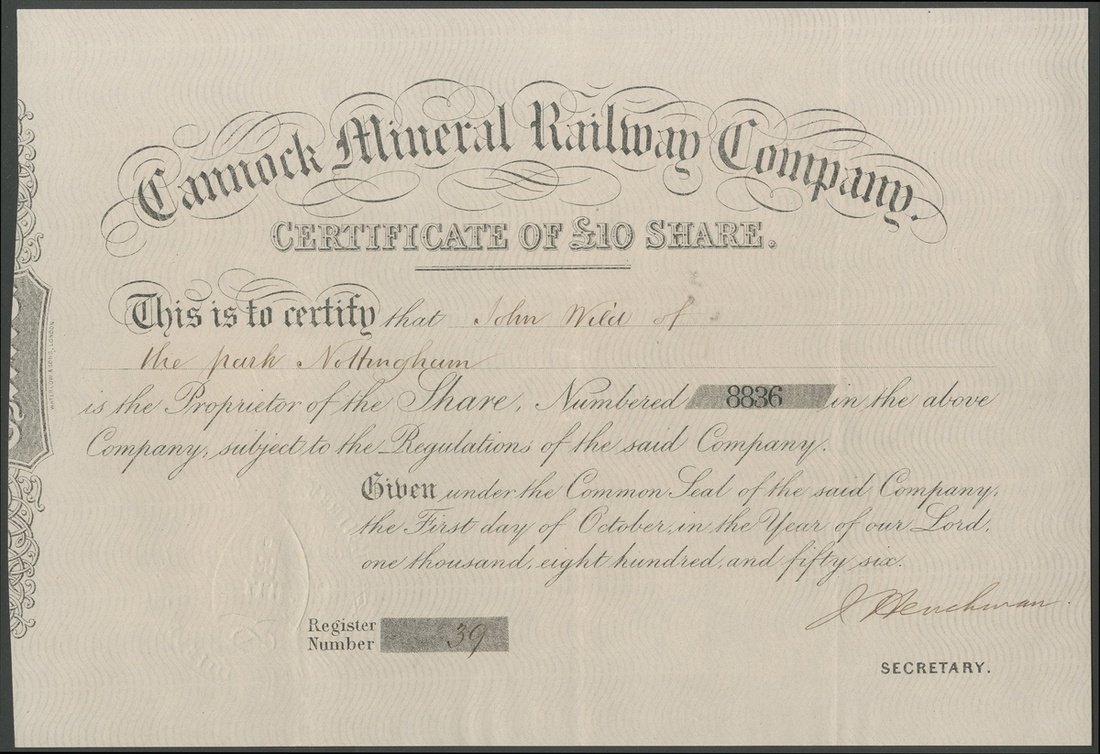 Cannock Mineral Railway Company.
CERTIFICATE OF £10 SHARE.
This is to certify that John Wild of
the park Nottingham
is the Proprietor of the Share, Numbered 8836 in the above
Company, subject to the Regulations of the said Company.
Given under the Common Seal of the said Company,
the First day of October, in the Year of our Lord,
one thousand, eight hundred, and fifty six.
J Henchman.
Register
Number 39
SECRETARY.